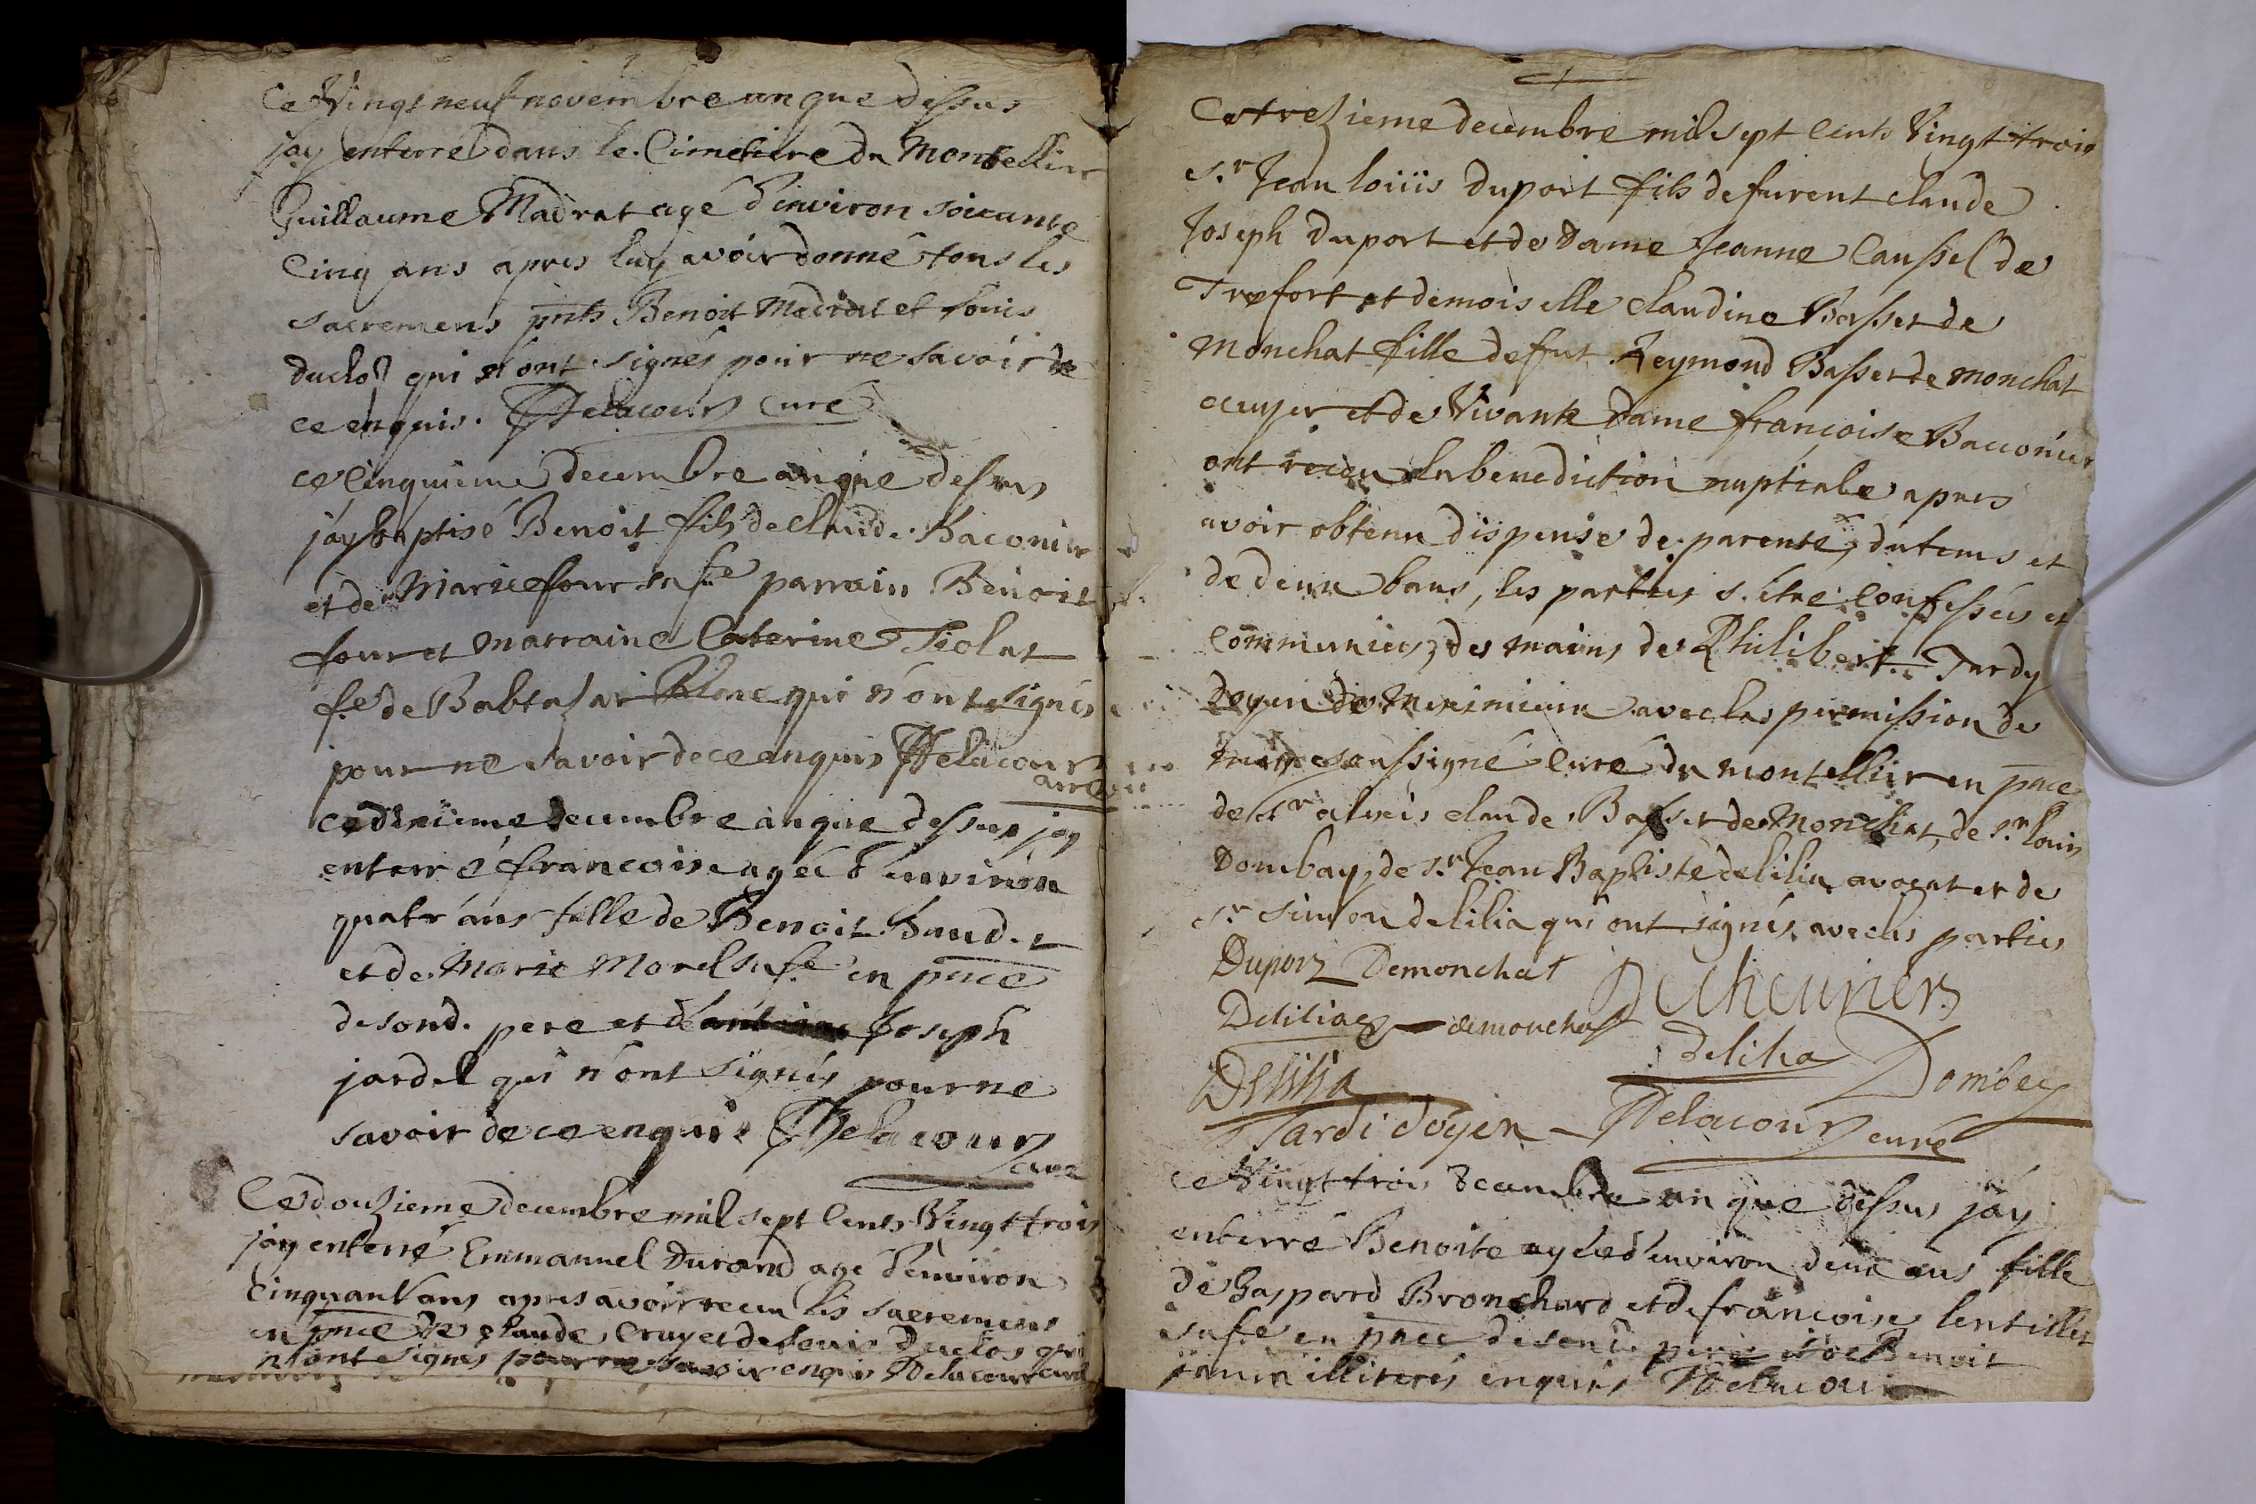 Ce Vingt neuf novembre an que dessus
jay enterré dans le Cimetiere du Montellier
Guillaume Madrat agé d'environ soixante
Cinq ans apres luy avoir donné tous les
sacremens pnts Benoit Madrat et louis
duclos qui n'ont signés pour ne savoir de
ce enquis. Delacour curé
ce cinquieme decembre an que dessus
jay baptisé Benoit fils de claude Baconier
et de Marie four sa fe parrain Benoit
four et marraine Caterine Tiolat
fe de Baltazar qui n'ont signés
pour ne savoir de ce enquis Delacour
curé
ce dixieme decembre an que dessus jay
enterré francoise agée d'environ
quatr'ans fille de Benoit
et de Marie Morel sa fe en pnce
de sond. pere et de Joseph
jardel qui n'ont signés pour ne
savoir de ce enquis Delacour
curé
Ce douzieme decembre mil sept cents Vingt trois
jay enterré Emmanuel Durand agé d'environ
Cinquant'ans apres avoir receu les sacremens
en pnce de claude Cruyet de louis Duclos qui
n'ont signés pour ne savoir enquis Delacour curé
Ce trezieme decembre mil sept cents Vingt trois
sr Jean loüis duport fils de furent claude
Joseph duport et de Dame Jeanne Caussel de
Trefort et demoiselle claudine Basset de
Monchat fille de fut Reymond Basset de monchat
ecuyer et de Vivante Dame françoise Bacconier
ont receu la benediction nuptiale apres
avoir obtenu dispense de parenté, du tems et
de deux bans, les parties s'etre confessées et
communiées, des mains de Philibert Tardy
Doyen de Meximieux avec la permission de
moy soussigné curé du montellier en pnce
de sr alexis claude Basset de Monchat, de sr louis
Dombay, de sr Jean Baptiste delilia avocat et de
sr simon delilia qui ont signés avec les parties
Duport Demonchat
Delilia demonchat
delilia Dombey
Delilia
Tardi doyen Delacour curé
ce Vingt trois decembre an que dessus jay
enterré Benoite agée d'environ deux ans fille
de Gaspard Bronchard et de françoise lentillet
sa fe en pnce de sond. pere et de Benoit
janin illiterés enquis Delacour